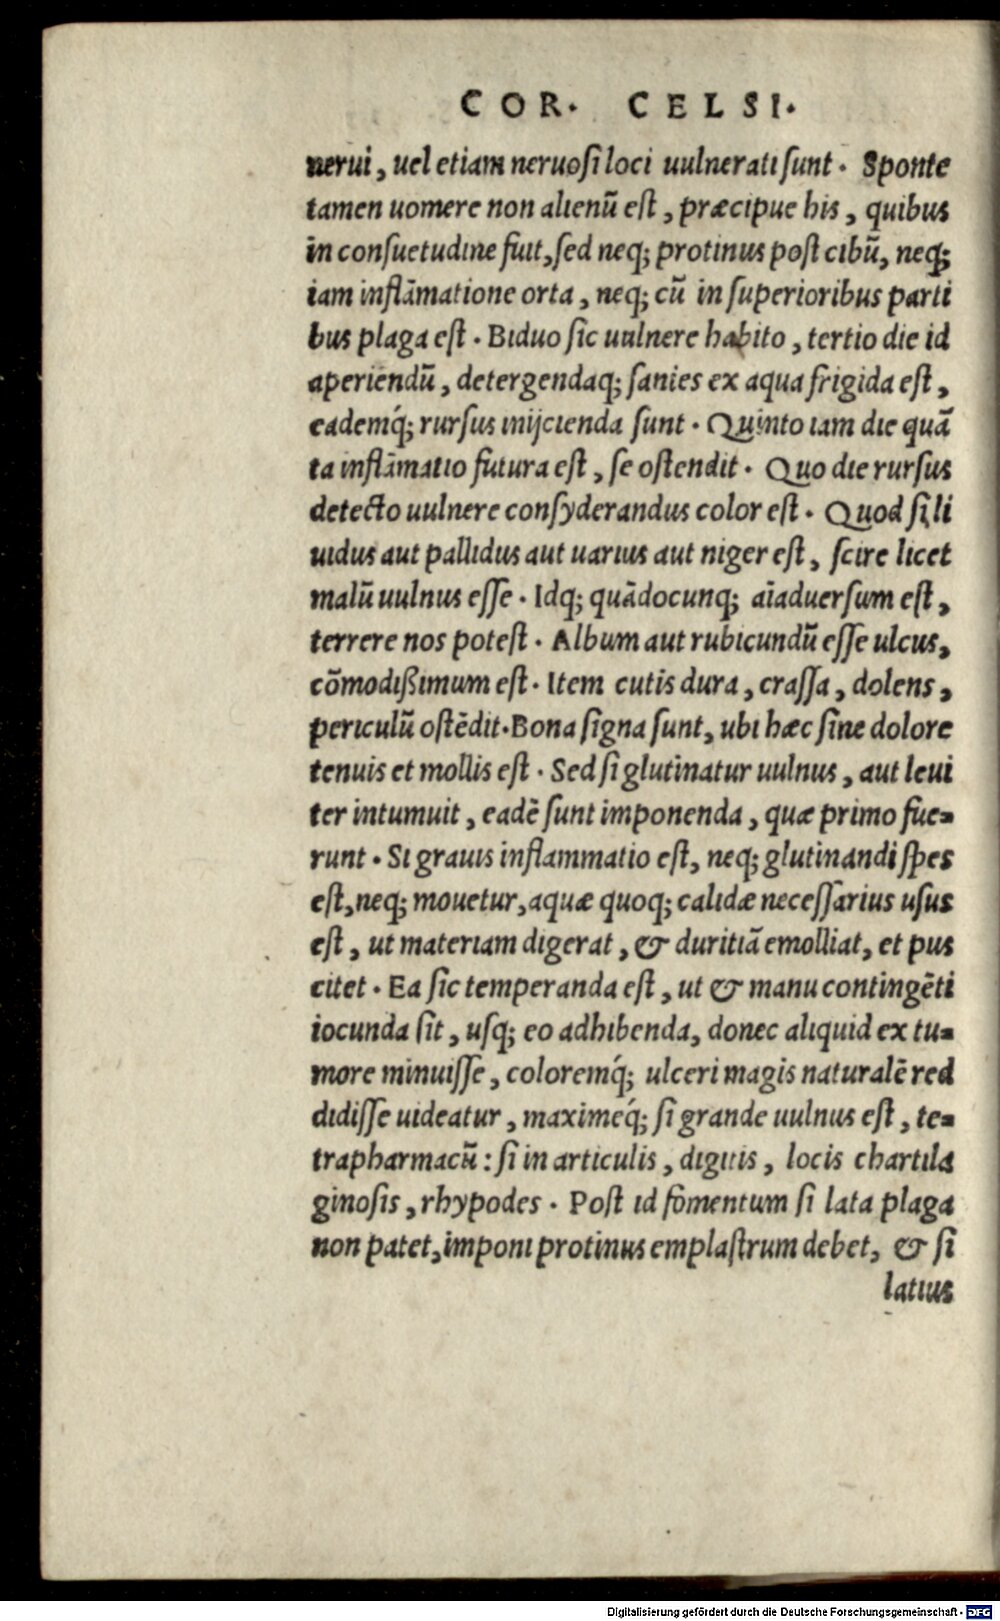 COR. CELSI.
nerui, uel etiam neruosi loci uulnerati sunt. Sponte
tamen uomere non alienū est, præcipue his, quibus
in consuetudine fuit, sed neq; protinus post cibū, neq;
iam inflāmatione orta, neq; cū in superioribus parti
bus plaga est. Biduo sic uulnere habito, tertio die id
aperiendū, detergendaq; sanies ex aqua frigida est,
eademq́; rursus inijcienda sunt. Quinto iam die quā
ta inflāmatio futura est, se ostendit. Quo die rursus
detecto uulnere consyderandus color est. Quod si, li
uidus aut pallidus aut uarius aut niger est, scire licet
malū uulnus esse. Idq; quādocunq; aīaduersum est,
terrere nos potest. Album aut rubicundū esse ulcus,
cōmodißimum est. Item cutis dura, crassa, dolens,
periculū ostēdit. Bona signa sunt, ubi hæc sine dolore
tenuis et mollis est. Sed si glutinatur uulnus, aut leui
ter intumuit, eadē sunt imponenda, quæ primo fue-
runt. Si grauis inflammatio est, neq; glutinandi spes
est, neq; mouetur, aquæ quoq; calidæ necessarius usus
est, ut materiam digerat, & duritiā emolliat, et pus
citet. Ea sic temperanda est, ut & manu contingēti
iocunda sit, usq; eo adhibenda, donec aliquid ex tu-
more minuisse, coloremq́; ulceri magis naturalē red
didisse uideatur, maximeq́; si grande uulnus est, te-
trapharmacū: si in articulis, digitis, locis chartila
ginosis, rhypodes. Post id fomentum si lata plaga
non patet, imponi protinus emplastrum debet, & si
latius
Digitalisierung gefördert durch die Deutsche Forschungsgemeinschaft - DFG